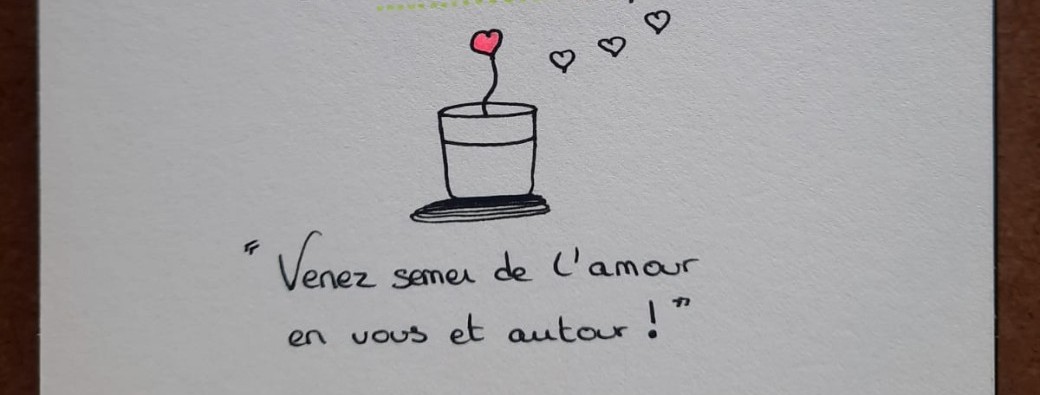 " Venez semer de l'amour
en vous et autour ! "